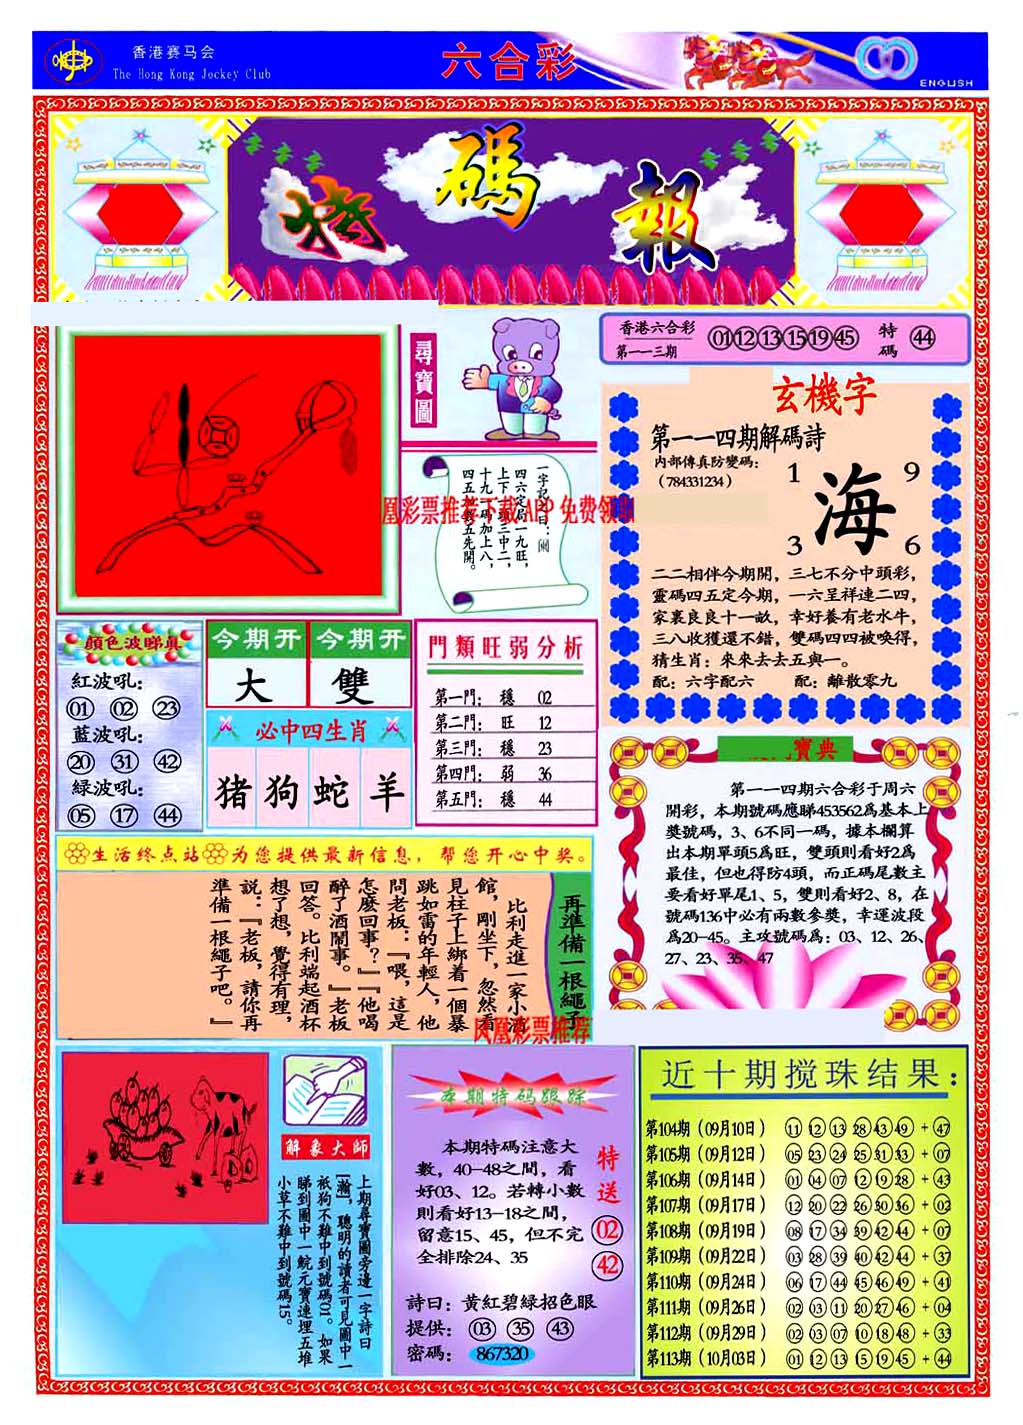 香港赛马会
The Hong Kong Jockey Club
六合彩
ENGLISH
特碼報
尋寶圖
香港六合彩
第一一三期
01 12 13 15 19 45
特碼
44
一字記之曰：
四六定局一九旺，
十九一碼加上八，
四五加數五先開。
凰彩票推荐下载APP免费领取
玄機字
第一一四期解碼詩
内部傳真防變碼：
（784331234）
1 9
海
3 6
二二相伴今期開，三七不分中頭彩，
靈碼四五定今期，一六呈祥連二四，
家裏良良十一畝，幸好養有老水牛，
三八收獲還不錯，雙碼四四被喚得，
猜生肖：來來去去五與一。
配：六字配六 配：離散零九
顏色波睇真
紅波吼：
01 02 23
藍波吼：
20 31 42
緑波吼：
05 17 44
今期开 今期开
大 雙
必中四生肖
猪 狗 蛇 羊
門類旺弱分析
第一門： 穩 02
第二門： 旺 12
第三門： 穩 23
第四門： 弱 36
第五門： 穩 44
寶典
第一一四期六合彩于周六
開彩，本期號碼應睇453562爲基本上
獎號碼，3、6不同一碼，據本欄算
出本期單頭5爲旺，雙頭則看好2爲
最佳，但也得防4頭，而正碼尾數主
要看好單尾1、5，雙則看好2、8，在
號碼136中必有兩數參獎，幸運波段
爲20—45。主攻號碼爲：03、12、26、
27、23、35、47
生活终点站 为您提供最新信息，帮您开心中奖。
再準備一根繩子
比利走進一家小酒
館，剛坐下，忽然看
見柱子上綁着一個暴
跳如雷的年輕人，他
問老板：『喂，這是
怎麽回事？』『他喝
醉了酒鬧事。』老板
回答。比利端起酒杯
想了想，覺得有理，
説：『老板，請你再
準備一根繩子吧。』
凤凰彩票推荐
解象大師
上期尋寶圖旁邊一字詩曰
［瀚］，聰明的讀者可見圖中一
祇狗不難中到號碼01。如果
睇到圖中一鯇元寶連埋五堆
小草不難中到號碼15。
本期特码跟踪
本期特碼注意大
數，40—48之間，看
好03、12。若轉小數
則看好13—18之間，
留意15、45，但不完
全排除24、35
特送
02
42
詩曰：黄紅碧緑招色眼
提供： 03 35 43
密碼： 867320
近十期搅珠结果：
第104期（09月10日） 11 12 13 28 43 49 + 47
第105期（09月12日） 05 23 24 25 31 33 + 07
第106期（09月14日） 01 04 07 12 19 28 + 43
第107期（09月17日） 12 20 22 26 30 36 + 02
第108期（09月19日） 08 17 34 39 42 44 + 07
第109期（09月22日） 03 28 39 40 42 44 + 37
第110期（09月24日） 06 17 44 45 46 49 + 41
第111期（09月26日） 02 03 11 20 27 46 + 04
第112期（09月29日） 02 03 07 10 18 48 + 33
第113期（10月03日） 01 12 13 15 19 45 + 44